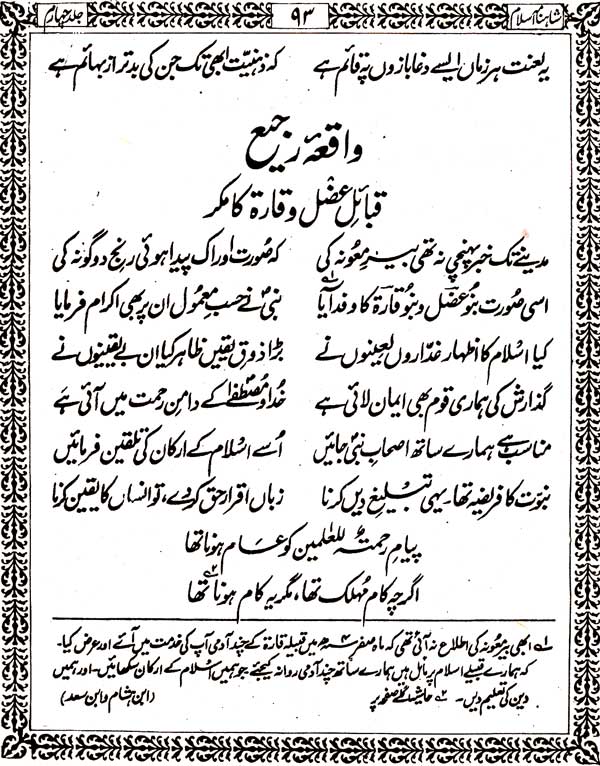 شاہنامہ اسلام ۹۳ جلد چہارم
یہ لعنت ہر زماں ایسے دغابازوں پہ قائم ہے کہ ذہنیت ابھی تک جن کی بدتر از بہائم ہے
واقعۂ رجیع
قبائلِ عضل و قارۃ کا مکر
مدینے تک خبر پہنچی نہ تھی بیرِ معونہ کی کہ صورت اور اک پیدا ہوئی رنجِ دوگونہ کی
اسی صورت بنو عضل و بنو قارۃ کا وفد آیا نبیؐ نے حسبِ معمول ان پر بھی اکرام فرمایا
کیا اسلام کا اظہار غداروں لعینوں نے بڑا ذوقِ یقیں ظاہر کیا ان بے یقینوں نے
گذارش کی ہماری قوم بھی ایمان لائی ہے خدا و مصطفےٰؐ کے دامنِ رحمت میں آئی ہے
مناسب ہے ہمارے ساتھ اصحابِ نبیؐ جائیں اُسے اسلام کے ارکان کی تلقین فرمائیں
نبوت کا فریضہ تھا۔ یہی تبلیغِ دیں کرنا زباں اقرارِ حق کر دے، تو انساں کا یقیں کرنا
پیامِ رحمتہ للعٰلمینؐ کو عام ہونا تھا
اگرچہ کام مُہلک تھا، مگر یہ کام ہونا تھا ۲؎
۱؎ ابھی بیرِ معونہ کی اطلاع نہ آئی تھی کہ ماہ صفر ۴ھ میں قبیلہ قارۃ کے چند آدمی آپ کی خدمت میں آئے اور عرض کیا۔
کہ ہمارے قبیلے اسلام پر مائل ہیں ہمارے ساتھ چند آدمی روانہ کیجئے جو ہمیں اسلام کے ارکان سکھائیں۔ اور ہمیں
دین کی تعلیم دیں۔ ۲؎ حاشیہ اگلے صفحہ پر (ابن ہشام و ابن سعد)